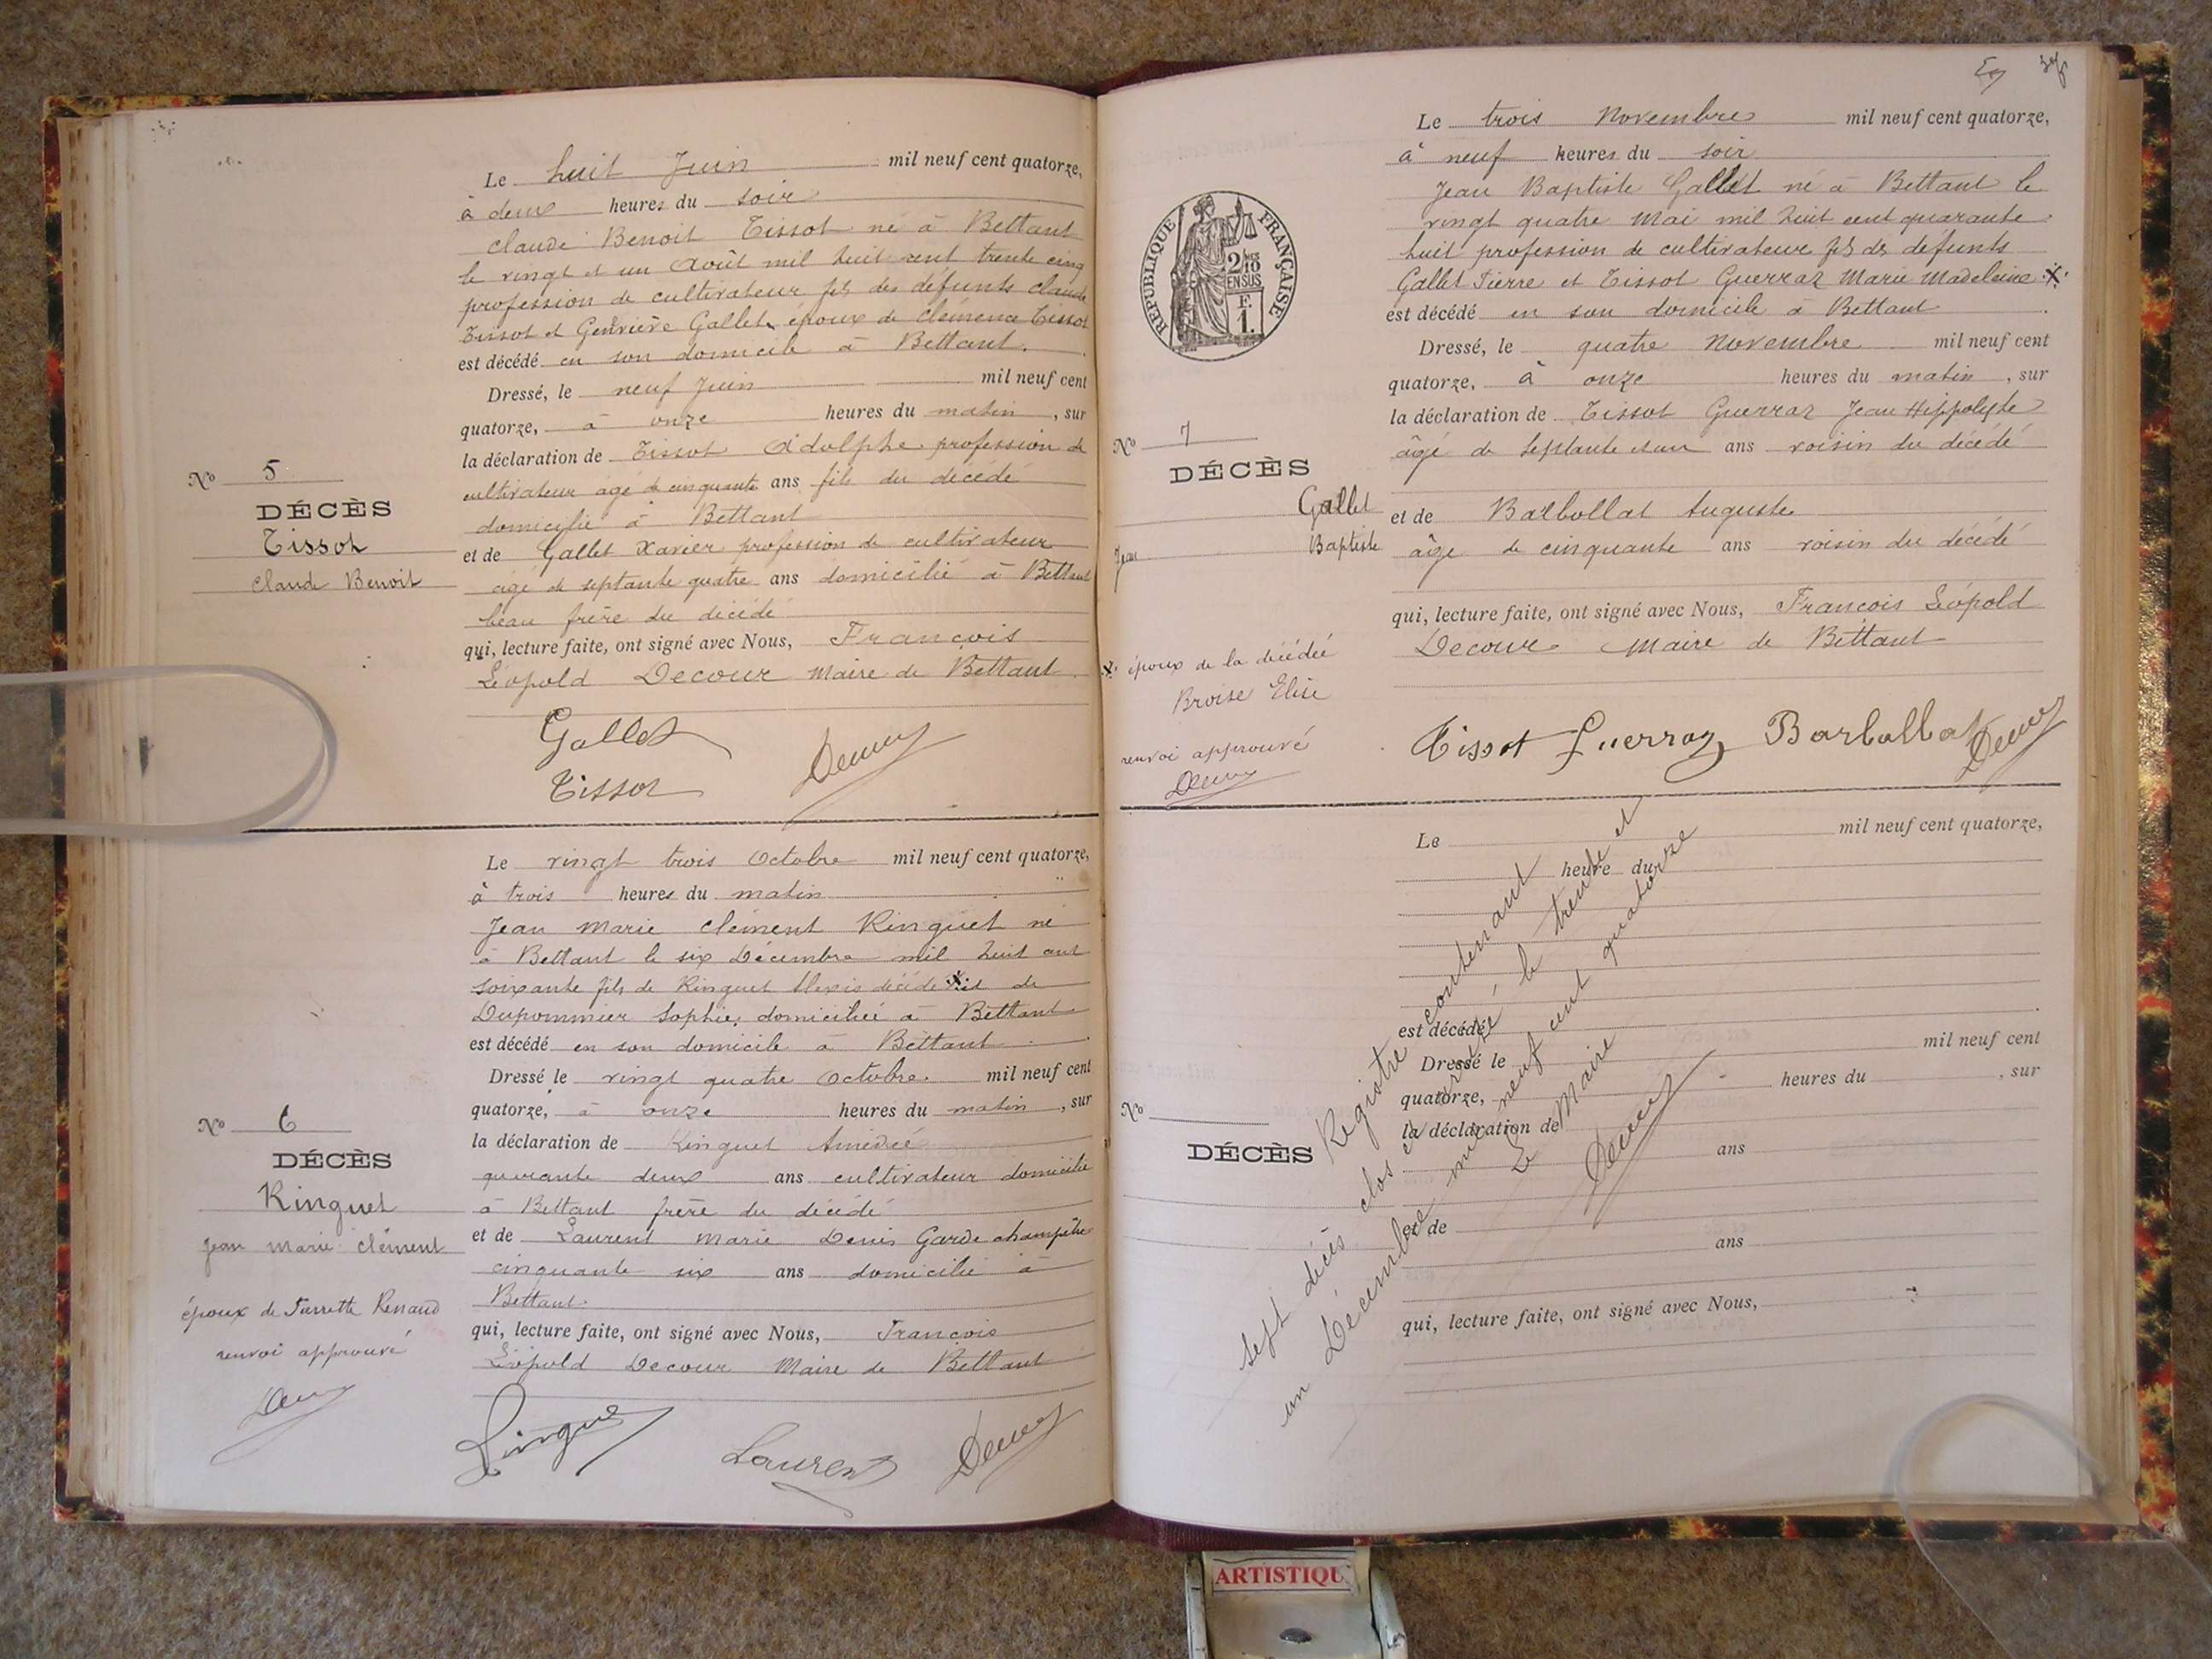 Le huit Juin mil neuf cent quatorze,
à deux heures du soir
Claude Benoit Tissot né à Bettant
le vingt et un Août mil huit cent trente cinq
profession de cultivateur fils des défunts Claude
Tissot et Genviève Gallet, époux de Clémence Tissot
est décédé en son domicile à Bettant.
Dressé, le neuf Juin mil neuf cent
quatorze, à onze heures du matin, sur
la déclaration de Tissot Adolphe profession de
cultivateur âgé de cinquante ans fils du décédé
domicilié à Bettant
et de Gallet Xavier profession de cultivateur
âgé de septante quatre ans domicilié à Bettant
beau frère du décédé
qui, lecture faite, ont signé avec Nous, François
Léopold Decour Maire de Bettant
No 5
DÉCÈS
Tissot
Claude Benoit
Gallet
Tissot
Decour
Le vingt trois Octobre mil neuf cent quatorze,
à trois heures du matin
Jean Marie Clément Ringuet né
à Bettant le six Décembre mil huit cent
soixante fils de Ringuet Alexis décédé X et de
Dupommier Sophie, domiciliée à Bettant
est décédé en son domicile à Bettant
Dressé le vingt quatre Octobre. mil neuf cent
quatorze, à onze heures du matin, sur
la déclaration de Ringuet Amédée
quarante deux ans cultivateur domicilié
à Bettant frère du décédé
et de Laurent Marie Denis Garde champêtre
cinquante six ans domicilié à
Bettant.
qui, lecture faite, ont signé avec Nous, François
Léopold Decour Maire de Bettant
No 6
DÉCÈS
Ringuet
Jean Marie Clément
époux de Renaud
renvoi approuvé
Decour
Ringuet
Laurent
Decour
Le trois Novembre mil neuf cent quatorze,
à neuf heures du soir
Jean Baptiste Gallet né à Bettant le
vingt quatre Mai mil huit cent quarante
huit profession de cultivateur fils des défunts
Gallet Pierre et Tissot Guerraz Marie Madeleine X
est décédé en son domicile à Bettant
Dressé, le quatre Novembre mil neuf cent
quatorze, à onze heures du matin, sur
la déclaration de Tissot Guerraz Jean Hippolyte
âgé de septante et un ans voisin du décédé
et de Barbollat Auguste
âge de cinquante ans voisin du décédé
qui, lecture faite, ont signé avec Nous, François Léopold
Decour Maire de Bettant
RÉPUBLIQUE FRANÇAISE
2/10
EN SUS
F.
1.
No 7
DÉCÈS
Gallet
Jean Baptiste
X époux de la décédée
Broise Elise
renvoi approuvé
Decour
Tissot Guerraz Barbollat Decour
Le mil neuf cent quatorze,
heure du
est décédé
Dressé le mil neuf cent
quatorze, heures du , sur
la déclaration de
ans
et de
ans
qui, lecture faite, ont signé avec Nous,
No
DÉCÈS
Registre contenant
sept décès clos et arrêté le trente et
un Décembre mil neuf cent quatorze
Le Maire
Decour
ARTISTIQU